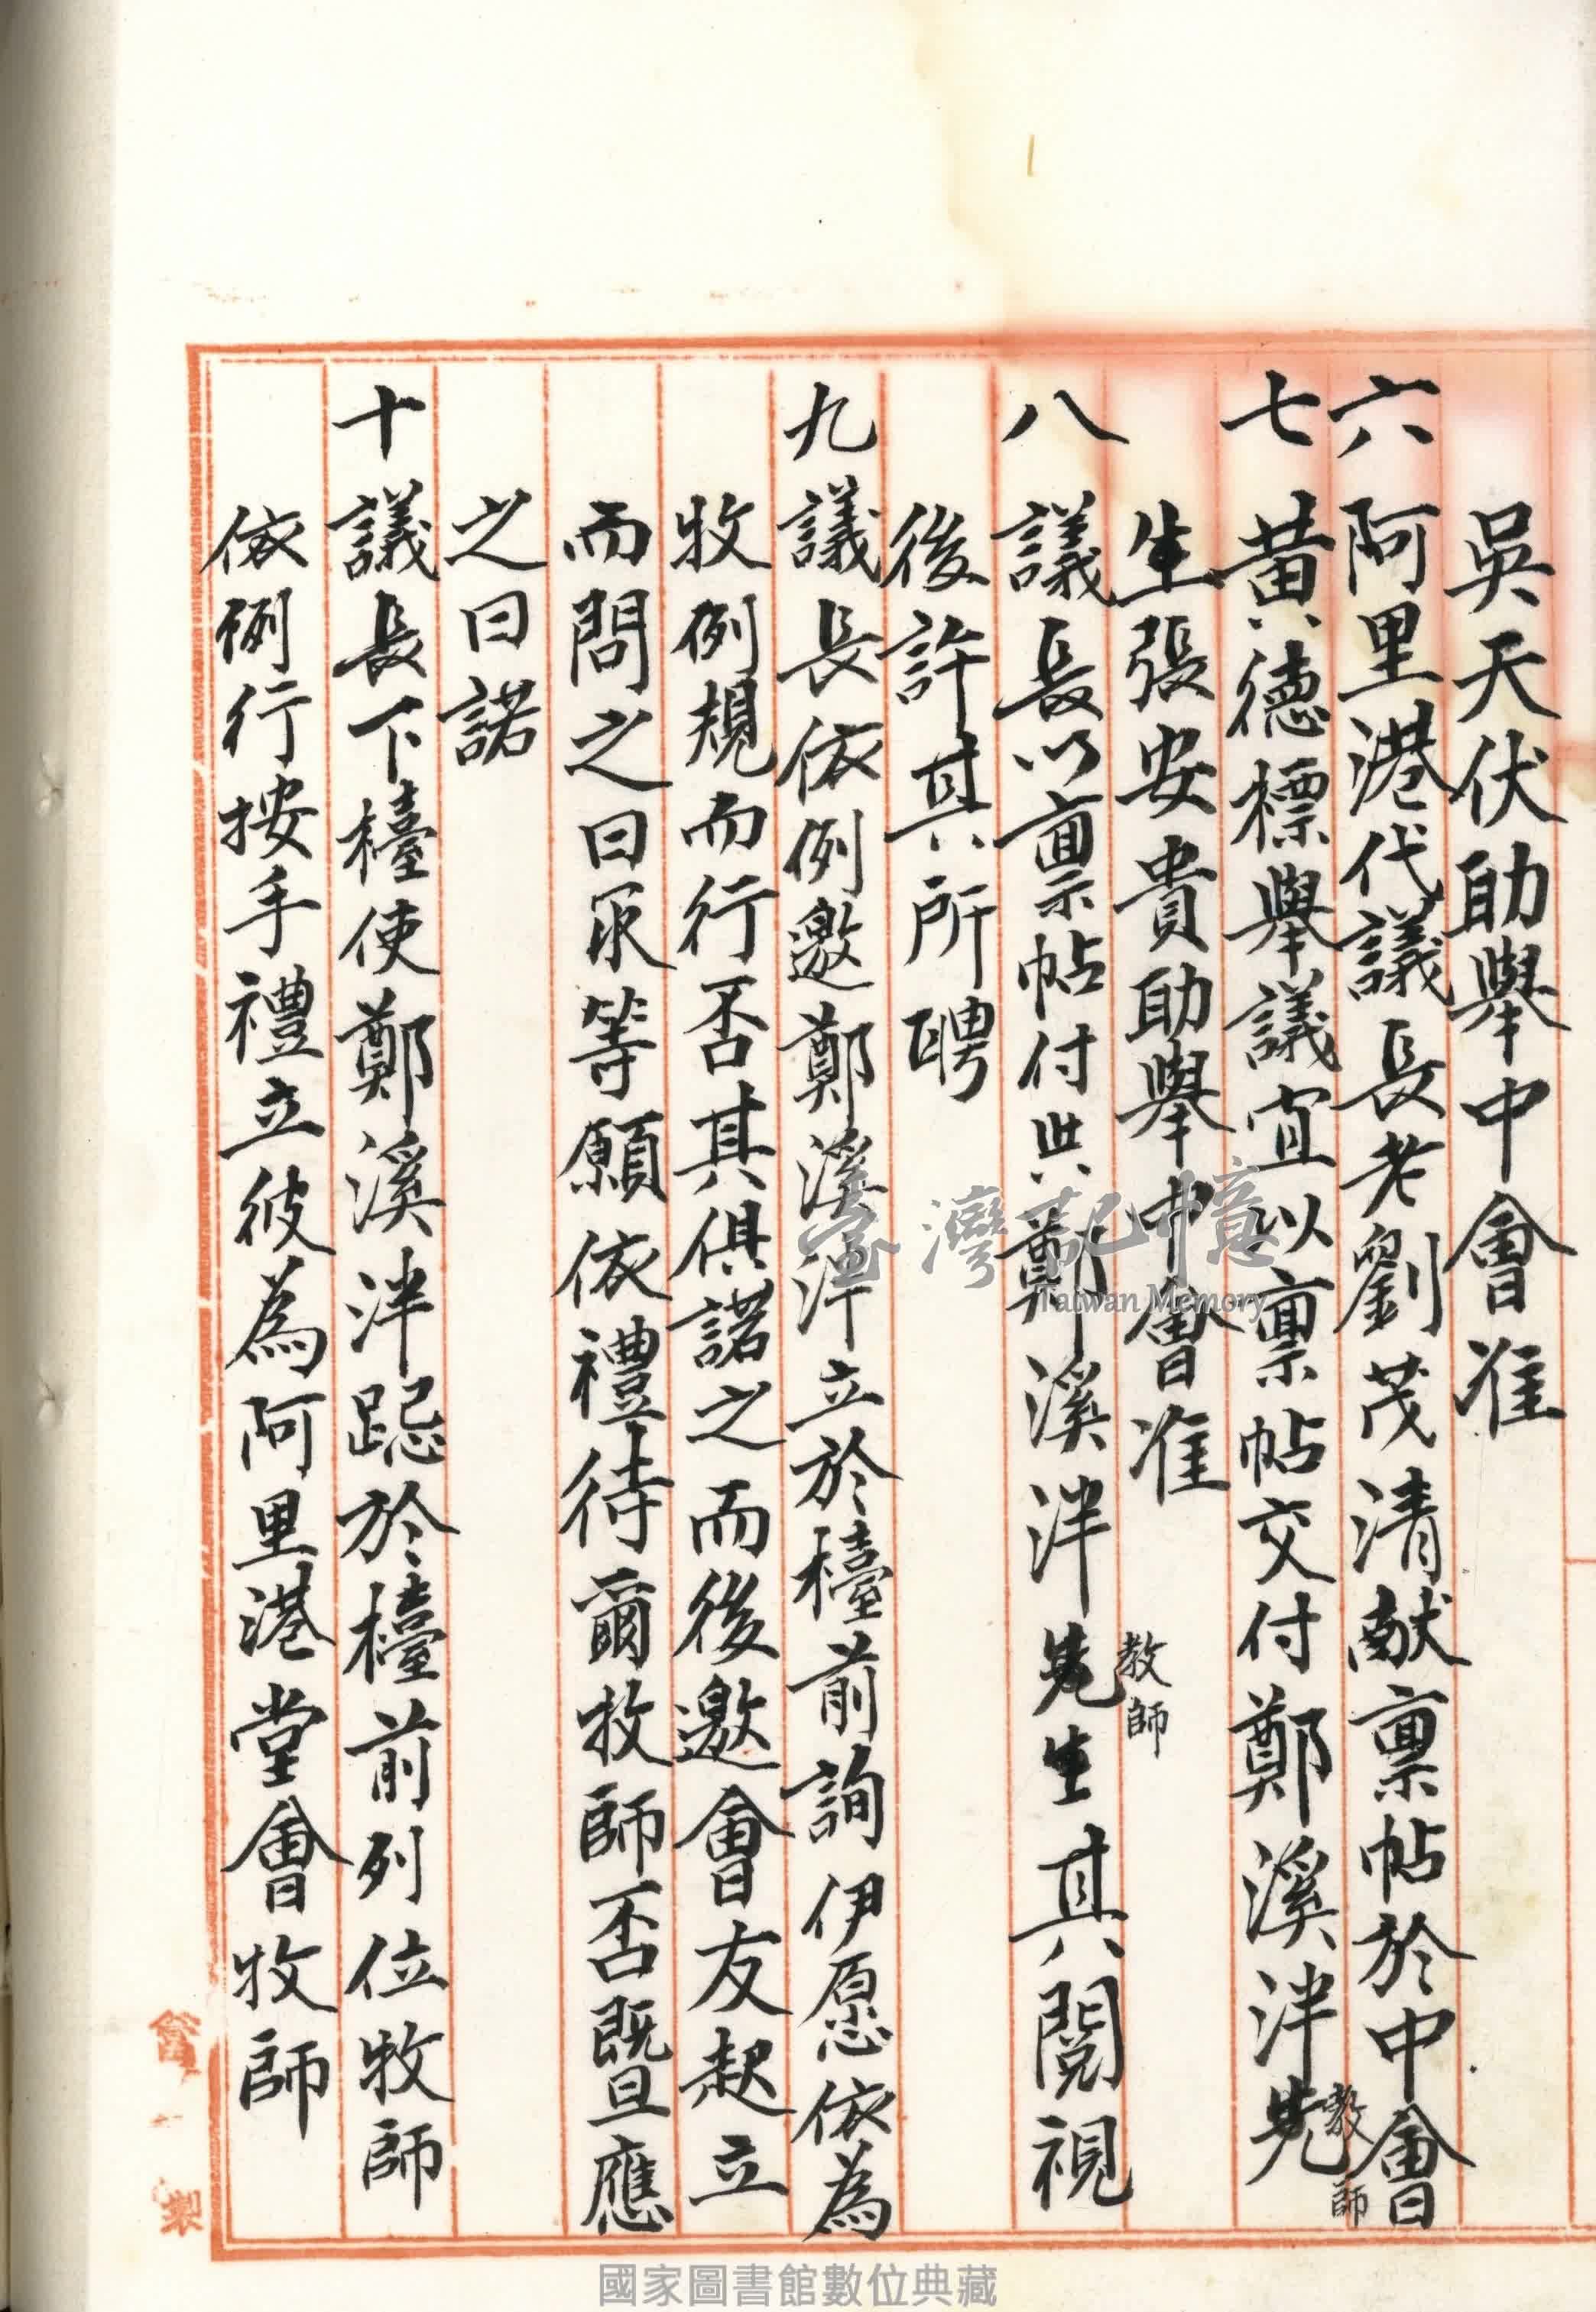 吳天伏助舉中會准
六 阿里港代議長老劉茂清献稟帖於中會
七 黃德標舉議宜以稟帖交付鄭溪泮先
教師
生張安貴助舉中會准
教師
八 議長以稟帖付與鄭溪泮先生其閱視
後許其所聘
九 議長依例邀鄭溪泮立於檯前詢伊愿依為
牧例規而行否其俱諾之而後邀會友起立
而問之曰眾等願依禮待爾牧師否既旦應
之曰諾
十 議長下檯使鄭溪泮跽於檯前列位牧師
依例行按手禮立彼為阿里港堂會牧師
臺灣記憶
Taiwan Memory
國家圖書館數位典藏